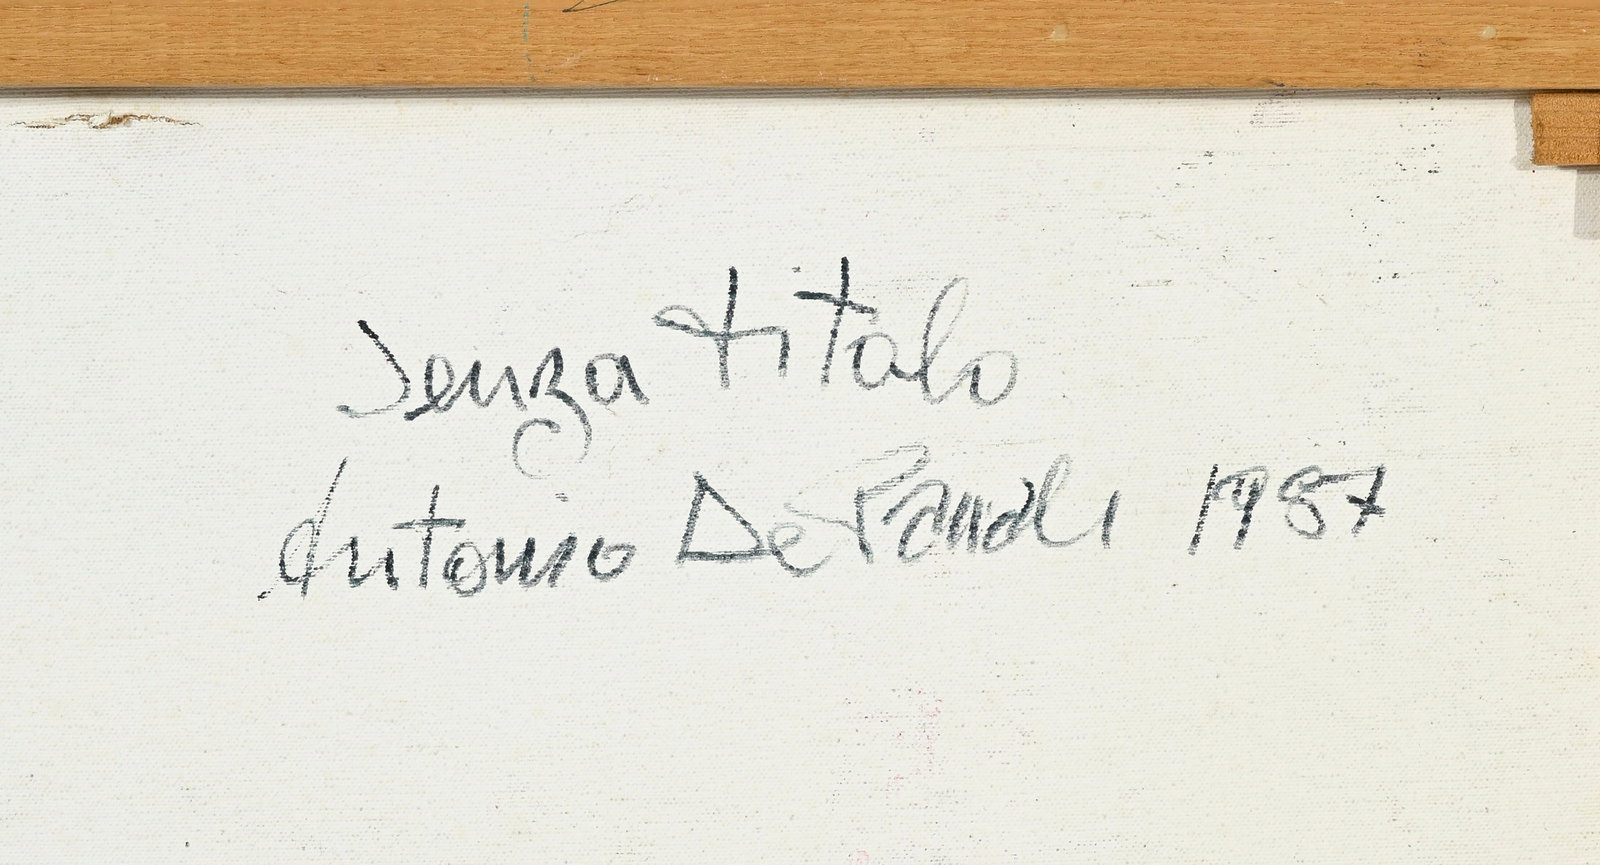 Senza titolo
Antonio De 1987